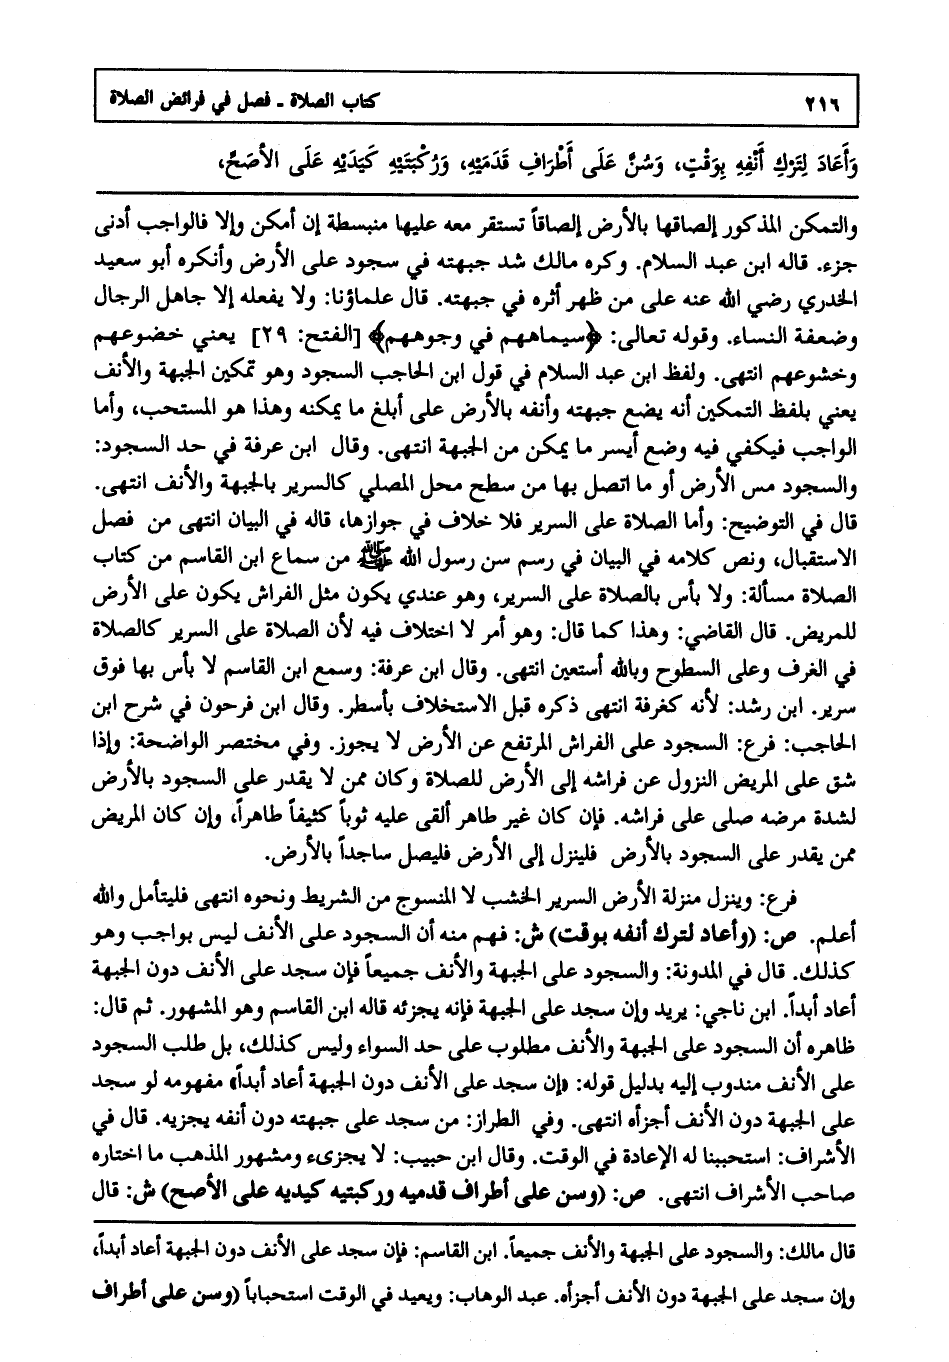 ٢١٦ كتاب الصلاة ـ فصل في فرائض الصلاة
وَأَعَادَ لِتَرْكِ أَنْفِهِ بِوَقْتٍ، وَسُنَّ عَلَى أَطْرَافِ قَدَمَيْهِ، وَرُكْبَتَيْهِ كَيَدَيْهِ عَلَى الأَصَحِّ،
والتمكن المذكور إلصاقها بالأرض إلصاقاً تستقر معه عليها منبسطة إن أمكن وإلا فالواجب أدنى
جزء. قاله ابن عبد السلام. وكره مالك شد جبهته في سجود على الأرض وأنكره أبو سعيد
الخدري رضي الله عنه على من ظهر أثره في جبهته. قال علماؤنا: ولا يفعله إلا جاهل الرجال
وضعفة النساء. وقوله تعالى: ﴿سيماهم في وجوههم﴾ [الفتح: ٢٩] يعني خضوعهم
وخشوعهم انتهى. ولفظ ابن عبد السلام في قول ابن الحاجب السجود وهو تمكين الجبهة والأنف
يعني بلفظ التمكين أنه يضع جبهته وأنفه بالأرض على أبلغ ما يمكنه وهذا هو المستحب، وأما
الواجب فيكفي فيه وضع أيسر ما يمكن من الجبهة انتهى. وقال ابن عرفة في حد السجود:
والسجود مس الأرض أو ما اتصل بها من سطح محل المصلي كالسرير بالجبهة والأنف انتهى.
قال في التوضيح: وأما الصلاة على السرير فلا خلاف في جوازها، قاله في البيان انتهى من فصل
الاستقبال، ونص كلامه في البيان في رسم سن رسول الله ﷺ من سماع ابن القاسم من كتاب
الصلاة مسألة: ولا بأس بالصلاة على السرير، وهو عندي يكون مثل الفراش يكون على الأرض
للمريض. قال القاضي: وهذا كما قال: وهو أمر لا اختلاف فيه لأن الصلاة على السرير كالصلاة
في الغرف وعلى السطوح وبالله أستعين انتهى. وقال ابن عرفة: وسمع ابن القاسم لا بأس بها فوق
سرير. ابن رشد: لأنه كغرفة انتهى ذكره قبل الاستخلاف بأسطر. وقال ابن فرحون في شرح ابن
الحاجب: فرع: السجود على الفراش المرتفع عن الأرض لا يجوز. وفي مختصر الواضحة: وإذا
شق على المريض النزول عن فراشه إلى الأرض للصلاة وكان ممن لا يقدر على السجود بالأرض
لشدة مرضه صلى على فراشه. فإن كان غير طاهر ألقى عليه ثوباً كثيفاً طاهراً، وإن كان المريض
ممن يقدر على السجود بالأرض فلينزل إلى الأرض فليصل ساجداً بالأرض.
فرع: وينزل منزلة الأرض السرير الخشب لا المنسوج من الشريط ونحوه انتهى فليتأمل والله
أعلم. ص: (وأعاد لترك أنفه بوقت) ش: فهم منه أن السجود على الأنف ليس بواجب وهو
كذلك. قال في المدونة: والسجود على الجبهة والأنف جميعاً فإن سجد على الأنف دون الجبهة
أعاد أبداً. ابن ناجي: يريد وإن سجد على الجبهة فإنه يجزئه قاله ابن القاسم وهو المشهور. ثم قال:
ظاهره أن السجود على الجبهة والأنف مطلوب على حد السواء وليس كذلك، بل طلب السجود
على الأنف مندوب إليه بدليل قوله: «إن سجد على الأنف دون الجبهة أعاد أبداً» مفهومه لو سجد
على الجبهة دون الأنف أجزأه انتهى. وفي الطراز: من سجد على جبهته دون أنفه يجزيه. قال في
الأشراف: استحببنا له الإعادة في الوقت. وقال ابن حبيب: لا يجزىء ومشهور المذهب ما اختاره
صاحب الأشراف انتهى. ص: (وسن على أطراف قدميه وركبتيه كيديه على الأصح) ش: قال
قال مالك: والسجود على الجبهة والأنف جميعاً. ابن القاسم: فإن سجد على الأنف دون الجبهة أعاد أبداً،
وإن سجد على الجبهة دون الأنف أجزأه. عبد الوهاب: ويعيد في الوقت استحباباً (وسن على أطراف